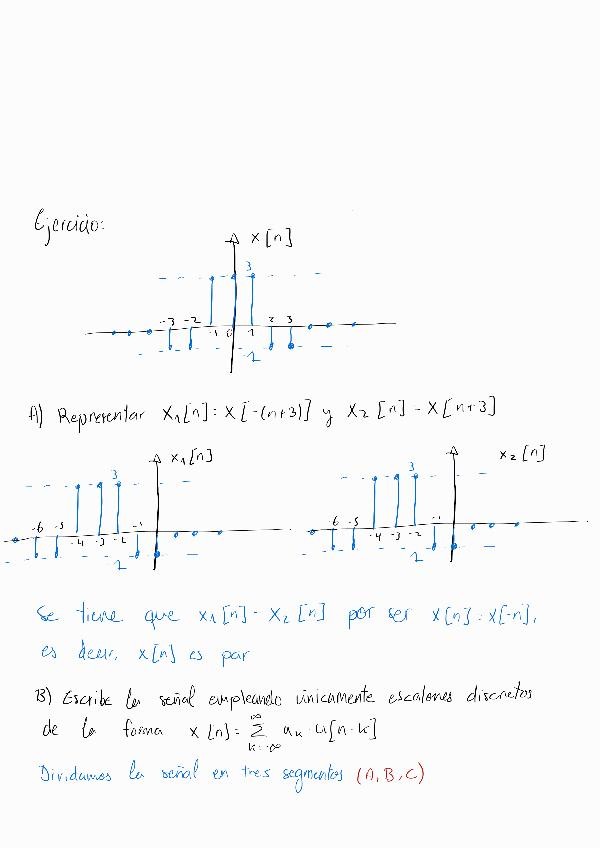 Ejercicio:
x[n]
3
-3 -2 -1 0 1 2 3
-1
A) Representar x1[n] = x[-(n+3)] y x2[n] = x[n+3]
x1[n]
3
-6 -5 -4 -3 -2 -1
-1
x2[n]
3
-6 -5 -4 -3 -2 -1
-1
Se tiene que x1[n] = x2[n] por ser x[n] = x[-n],
es decir, x[n] es par
B) Escribe la señal empleando únicamente escalones discretos
de la forma x[n] = ∑ ak · u[n-k]
∞
k=-∞
Dividamos la señal en tres segmentos (A, B, C)